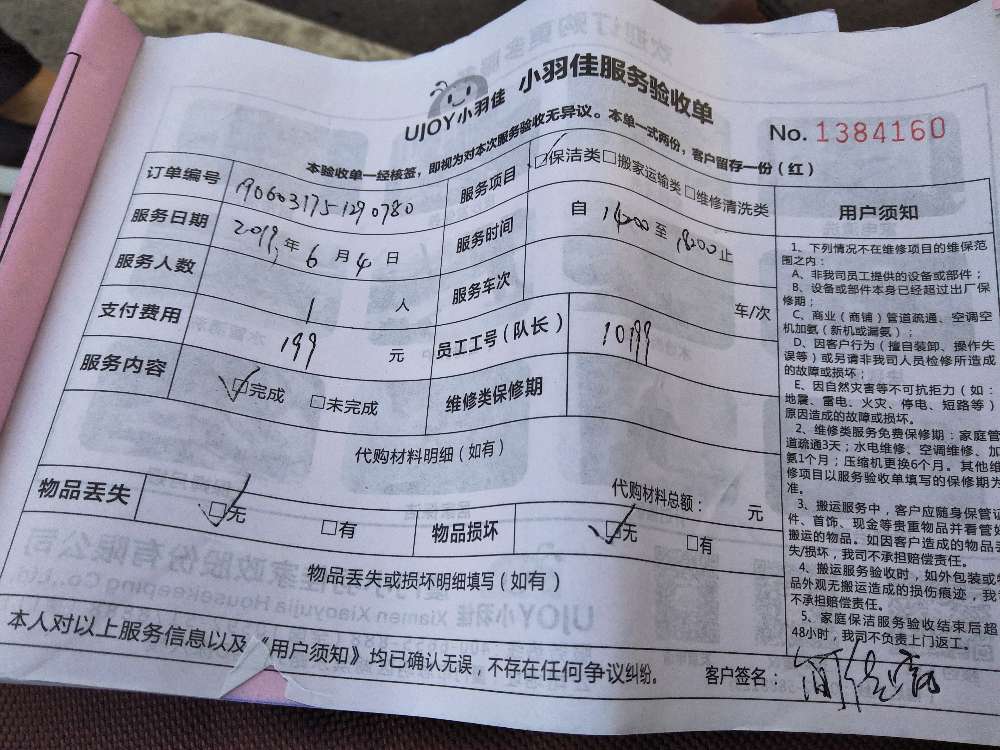 UJOY小羽佳 小羽佳服务验收单
No. 1384160
本验收单一经核签，即视为对本次服务验收无异议。本单一式两份，客户留存一份（红）
订单编号 1906031751290780 服务项目 □保洁类□搬家运输类□维修清洗类
服务日期 2019年6月4日 服务时间 自 14:00 至 18:00 止
服务人数 1 人 服务车次 车/次
支付费用 199 元 员工工号（队长） 10199
服务内容 □完成 □未完成 维修类保修期
代购材料明细（如有）
代购材料总额： 元
物品丢失 □无 □有 物品损坏 □无 □有
物品丢失或损坏明细填写（如有）
本人对以上服务信息以及《用户须知》均已确认无误，不存在任何争议纠纷。 客户签名：
用户须知
1、下列情况不在维修项目的维保范
围之内：
A、非我司员工提供的设备或部件；
B、设备或部件本身已经超过出厂保
修期；
C、商业（商铺）管道疏通、空调空
机加氨（新机或漏氨）；
D、因客户行为（擅自装卸、操作失
误等）或另请非我司人员检修所造成
的故障或损坏；
E、因自然灾害等不可抗拒力（如：
地震、雷电、火灾、停电、短路等）
原因造成的故障或损坏。
2、维修类服务免费保修期：家庭管
道疏通3天；水电维修、空调维修、加
氨1个月；压缩机更换6个月。其他维
修项目以服务验收单填写的保修期为
准。
3、搬运服务中，客户应随身保管证
件、首饰、现金等贵重物品并看管好
搬运的物品。如因客户造成的物品丢
失/损坏，我司不承担赔偿责任。
4、搬运服务验收时，如外包装或物
品外观无搬运造成的损伤痕迹，我司
不承担赔偿责任。
5、家庭保洁服务验收结束后超
48小时，我司不负责上门返工。